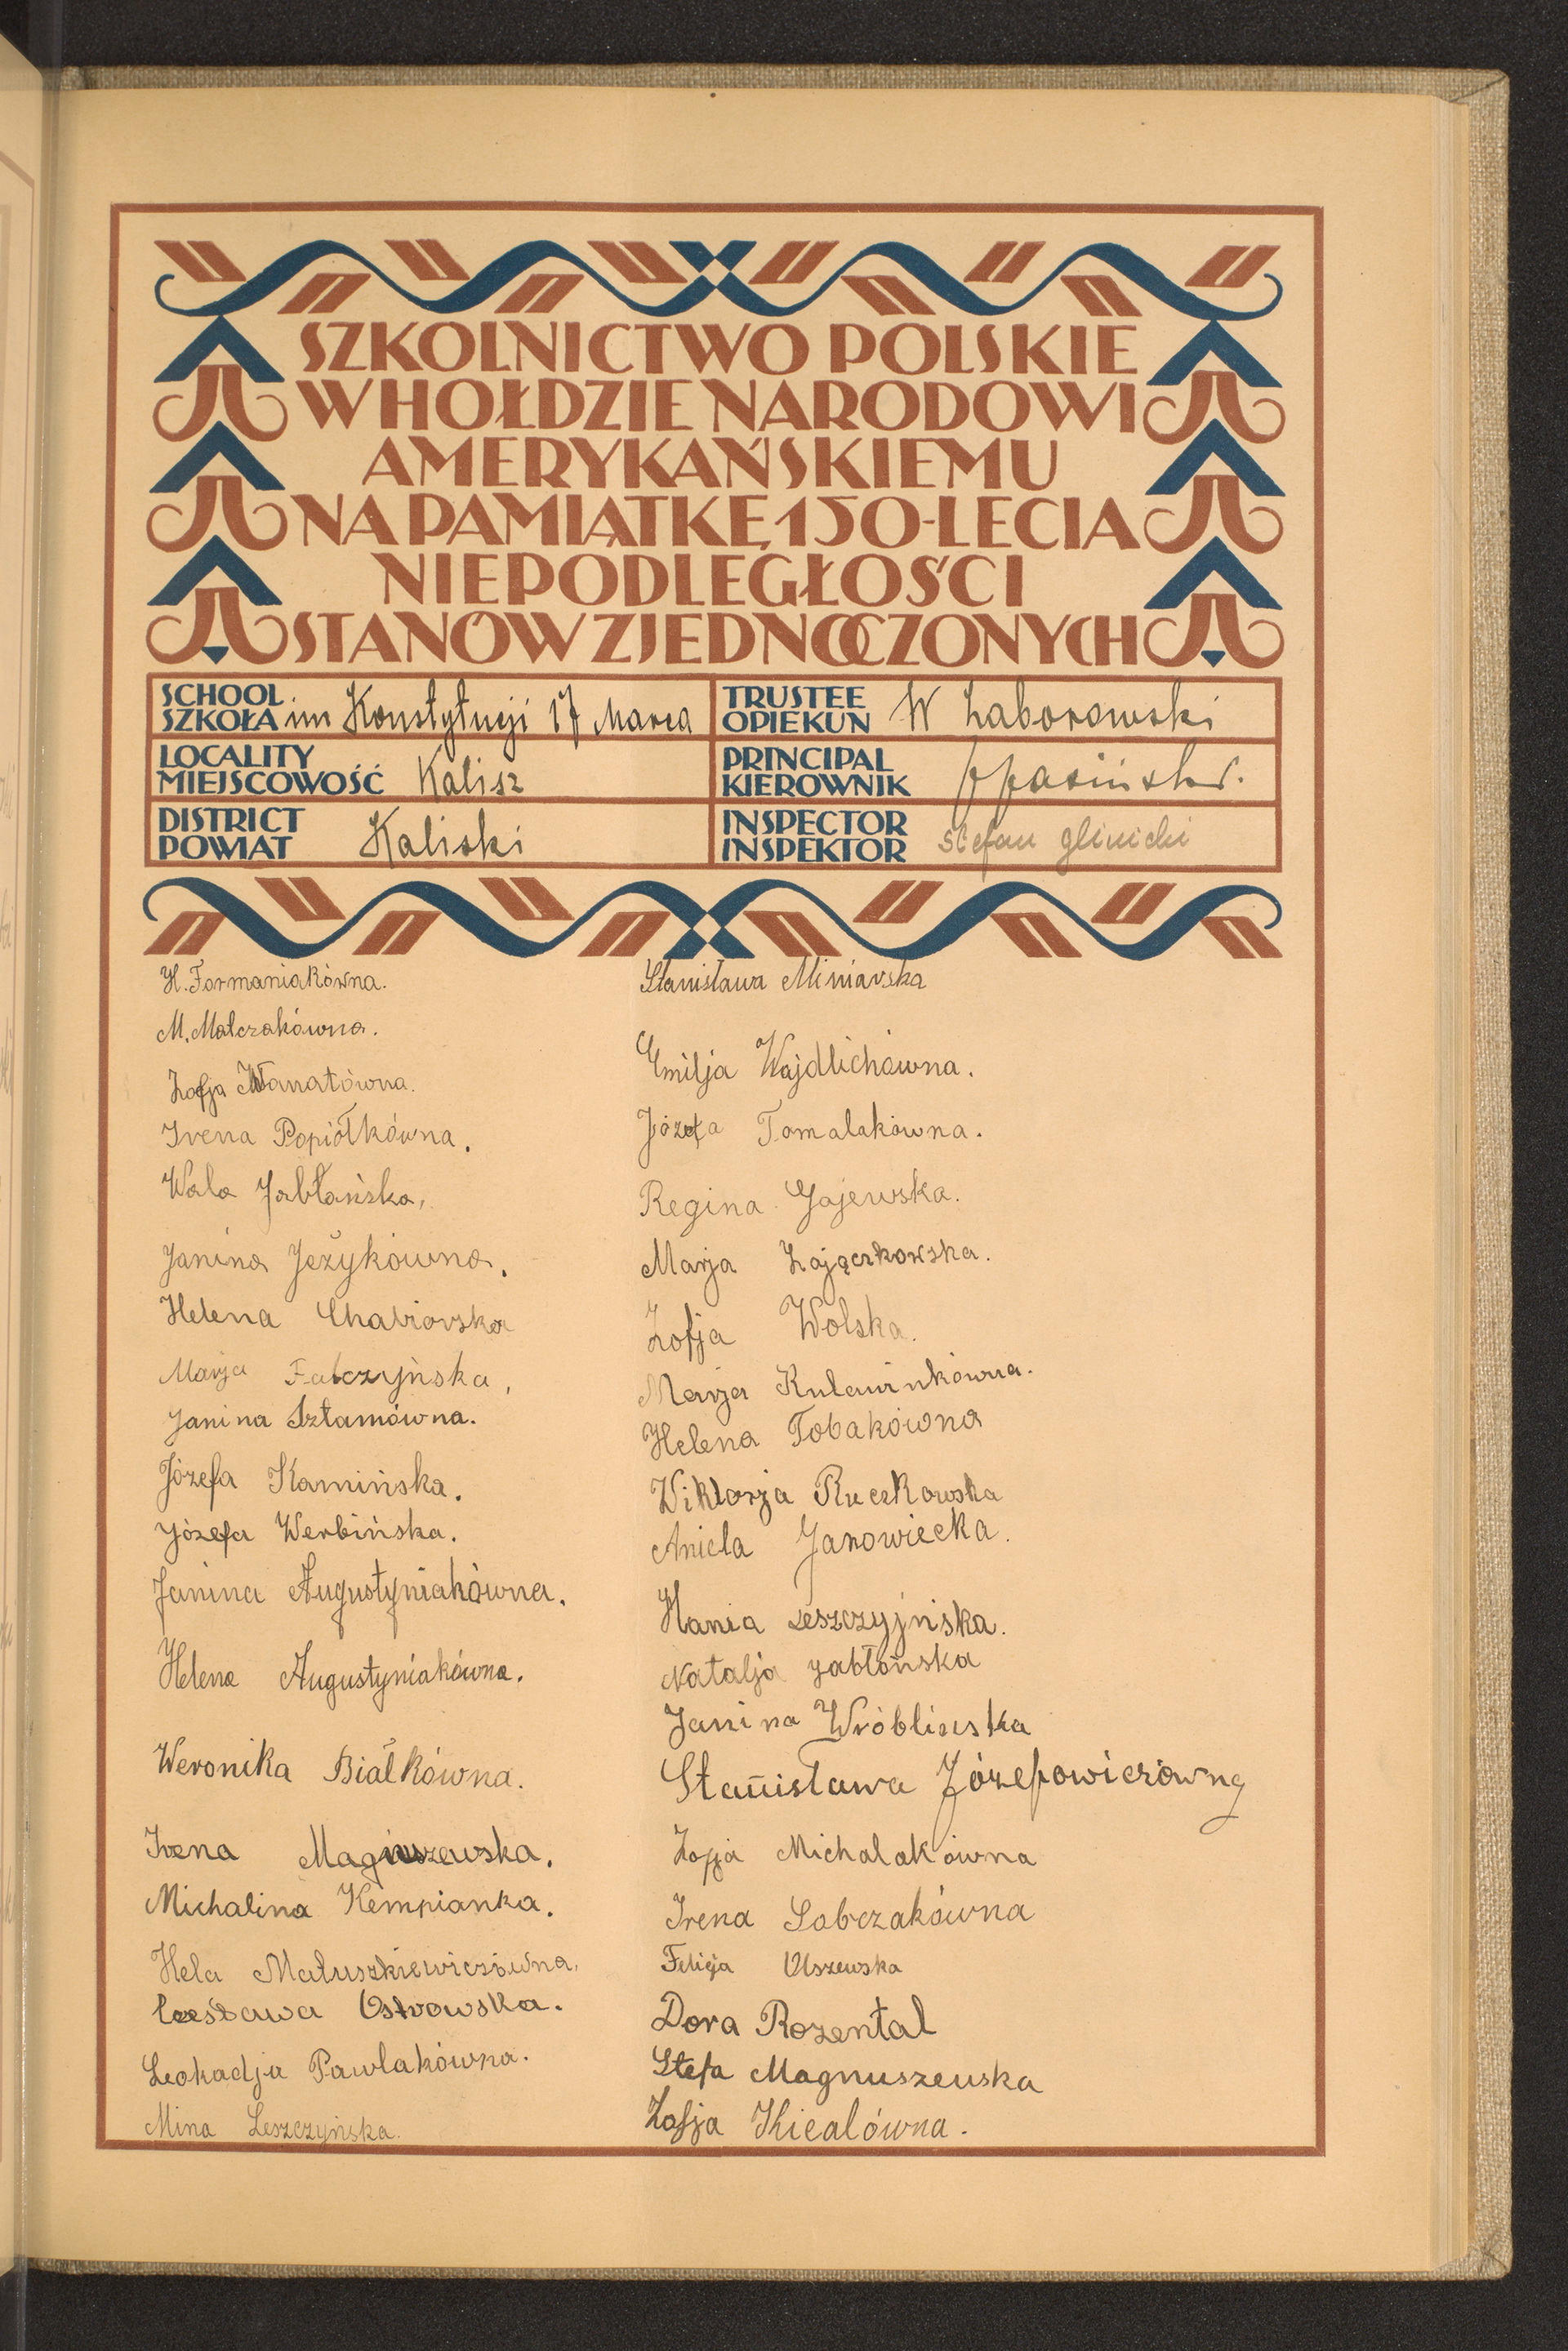 SZKOLNICTWO POLSKIE
W HOŁDZIE NARODOWI
AMERYKAŃSKIEMU
NA PAMIĄTKĘ 150-LECIA
NIEPODLEGŁOŚCI
STANÓW ZJEDNOCZONYCH
SCHOOL
SZKOŁA im Konstytucji 17 Marca
LOCALITY
MIEJSCOWOŚĆ Kalisz
DISTRICT
POWIAT Kaliski
TRUSTEE
OPIEKUN W Zaborowski
PRINCIPAL
KIEROWNIK
INSPECTOR
INSPEKTOR Stefan Glinicki
H. Formaniakówna.
M. Matczakówna.
Zofja Wanatówna.
Irena Popiółkówna.
Wala Jabłańska,
Janina Jeżykówna.
Helena Chabiorska
Marja Falczyńska,
Janina Sztamówna.
Józefa Kamińska.
Józefa Werbińska.
Janina Augustyniakówna.
Helena Augustyniakówna.
Weronika Białkówna.
Irena Magnuszewska.
Michalina Kempianka.
Hela Matuszkiewiczówna.
Czesława Ostrowska.
Leokadja Pawlakówna.
Mina Leszczyńska.
Stanisława Miniarska
Emilja Wajdlichówna.
Józefa Tomalakówna.
Regina Gajewska.
Marja Zajączkowska.
Zofja Wolska.
Marja Kulawinkówna.
Helena Tobakówna
Wiktorja Ruczkowska
Aniela Janowiecka.
Hania Leszczyjńska.
Natalja Jabłońska
Janina Wróblewska
Stanisława Józefowiczówna
Zofja Michalakówna
Irena Sobczakówna
Felicja Olszewska
Dora Rozental
Stefa Magnuszewska
Zofja Kiealówna.